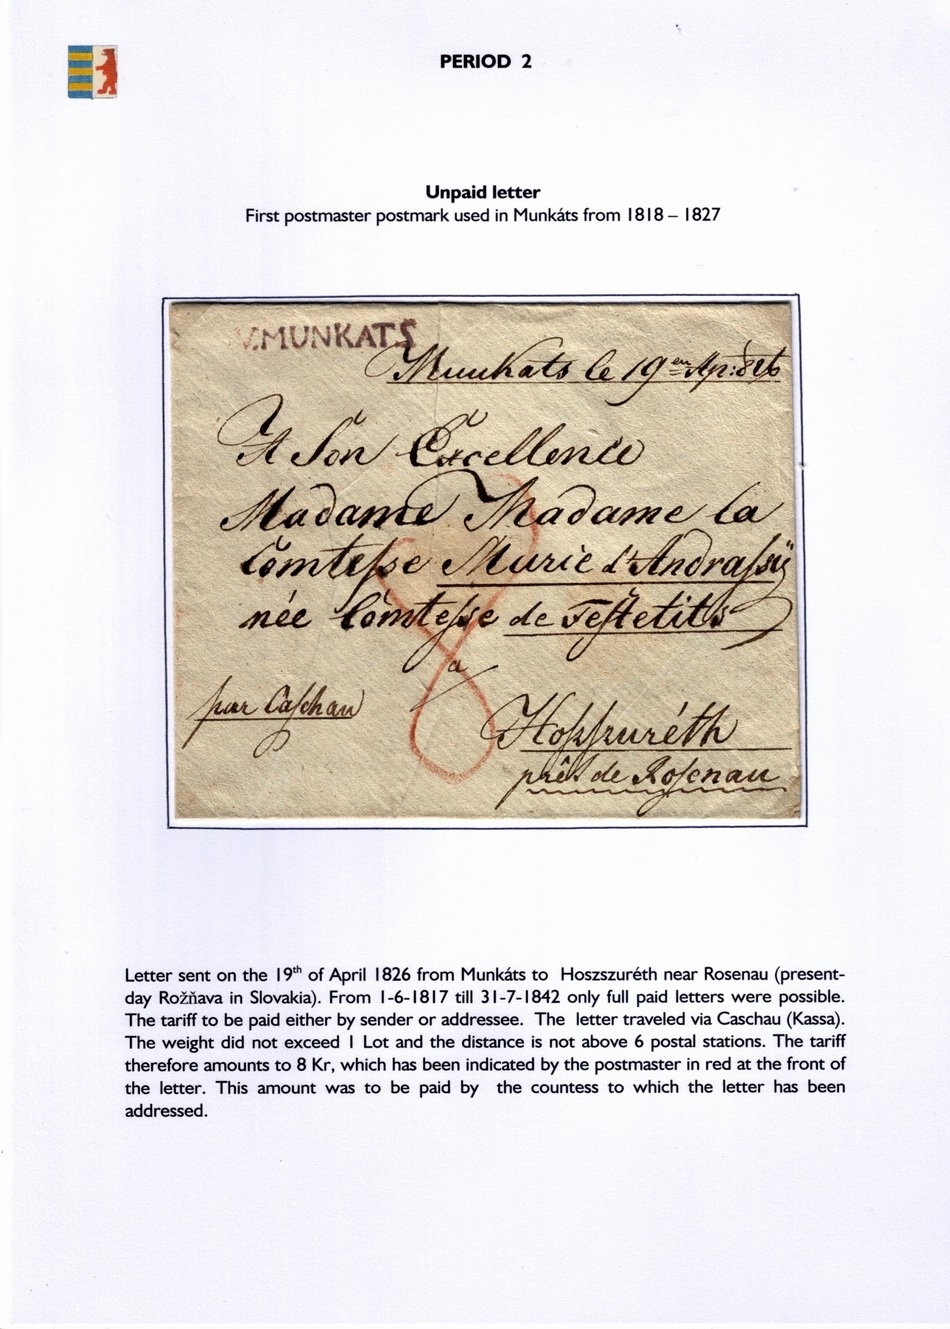 PERIOD 2
Unpaid letter
First postmaster postmark used in Munkáts from 1818 – 1827
V.MUNKATS
Munkats le 19en Ap: 826
A Son Excellence
Madame Madame la
Comtesse Marie d'Andrassÿ
née Comtesse de Festetits
a
par Caschau
Hoszszuréth
près de Rosenau
Letter sent on the 19th of April 1826 from Munkáts to Hoszszuréth near Rosenau (present-
day Rožňava in Slovakia). From 1-6-1817 till 31-7-1842 only full paid letters were possible.
The tariff to be paid either by sender or addressee. The letter traveled via Caschau (Kassa).
The weight did not exceed 1 Lot and the distance is not above 6 postal stations. The tariff
therefore amounts to 8 Kr, which has been indicated by the postmaster in red at the front of
the letter. This amount was to be paid by the countess to which the letter has been
addressed.